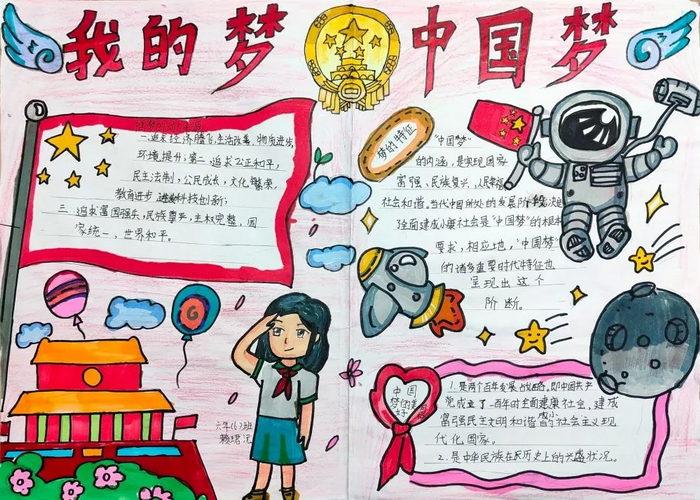 我的梦 中国梦
一.追求经济腾飞,生活改善,物质进步,
环境提升;第二追求公正和平,
民主法制,公民成长,文化繁荣,
教育进步 科技创新;
三.追求富国强兵,民族尊严,主权完整,国
家统一、世界和平。
六年(6)班
梦的特征
"中国梦"
的内涵,是实现国家
富强、民族复兴、人民幸福
社会和谐,当代中国所处的发展阶段决定
了全面建成小康社会是"中国梦"的根本
要求,相应地,"中国梦"
的诸多重要时代特征也
呈现出这个
阶断。
中国
1.是两个百年发展战略。即中国共产
党成立了一百年时全面建康社会,建成
富强民主文明和谐的社会主义现
代化国家。
2.是中华民族在历史上的兴盛状况。